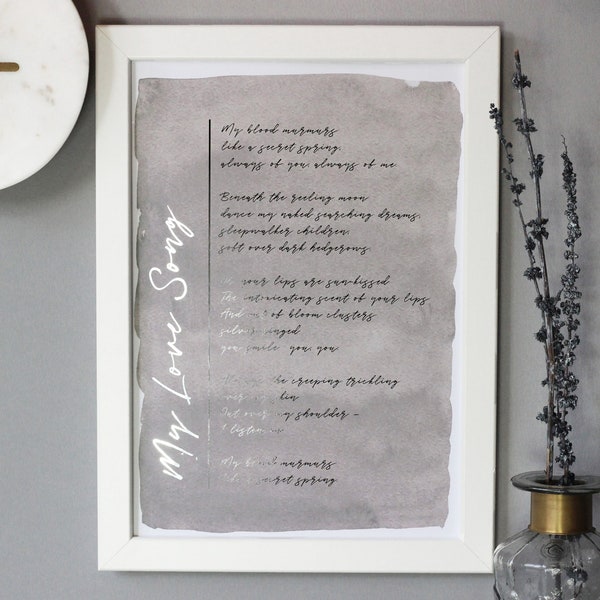 My Love Song
My blood murmurs
like a secret spring,
always of you, always of me.
Beneath the reeling moon
dance my naked searching dreams,
sleepwalker children,
soft over dark hedgerows.
your lips are sun-kissed
The intoxicating scent of your lips
And of bloom clusters
silver-ringed
you smile you, you.
the creeping trickling
over my skin
over my shoulder –
I listen
My blood murmurs
secret spring